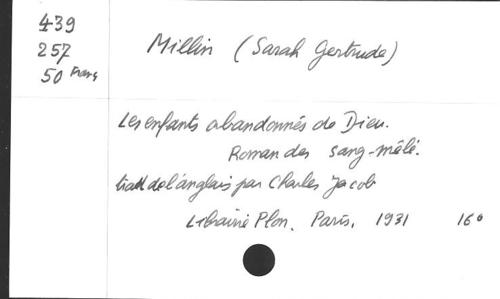 439
257
50 Francs
Millin (Sarah Gertrude)
Les enfants abandonnés de Dieu.
Roman des sang-mêlé.
trad de l'anglais par Charles Jacob
Librairie Plon. Paris, 1931 16°